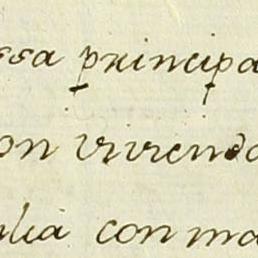 ssa principa
on vivendo
ulia con ma